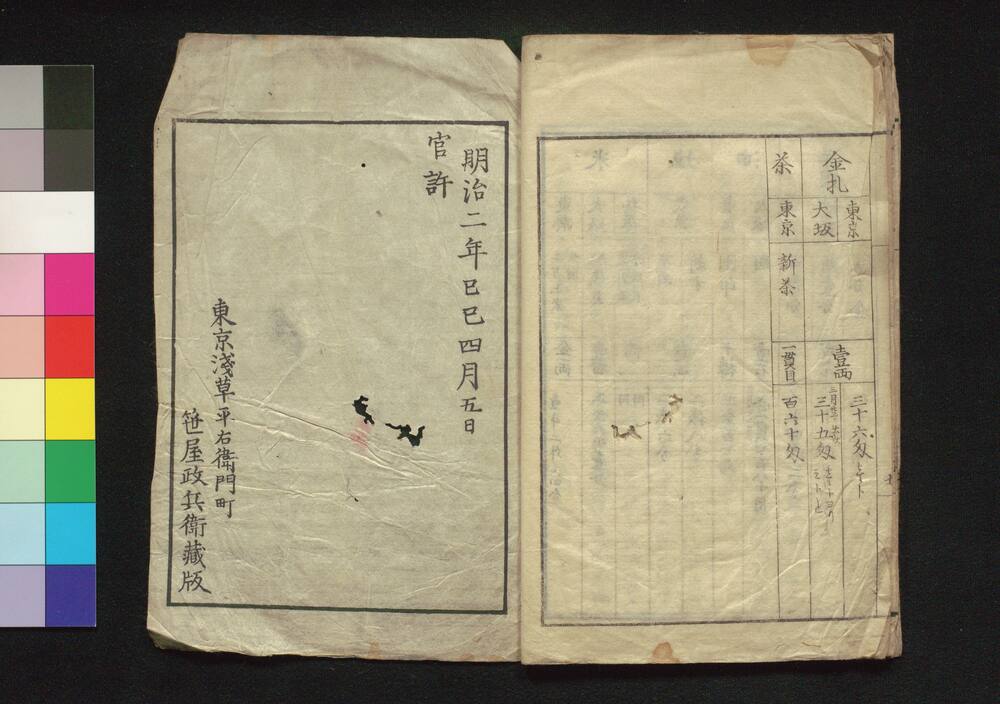 金札
東京
大坂
壹両
三十六匁
三十九匁
茶
東京
新茶
一貫目
百六十匁
明治二年巳巳四月五日
官許
東京淺草平右衛門町
笹屋政兵衛藏版